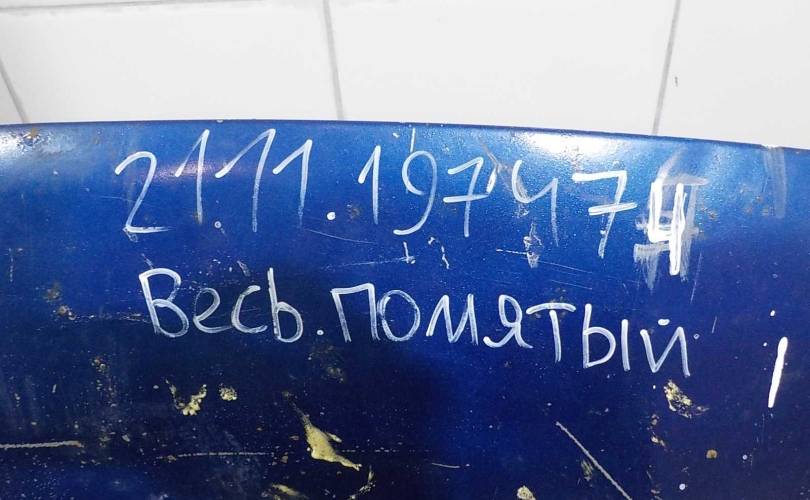 21.11.1974474
Весь.помятый